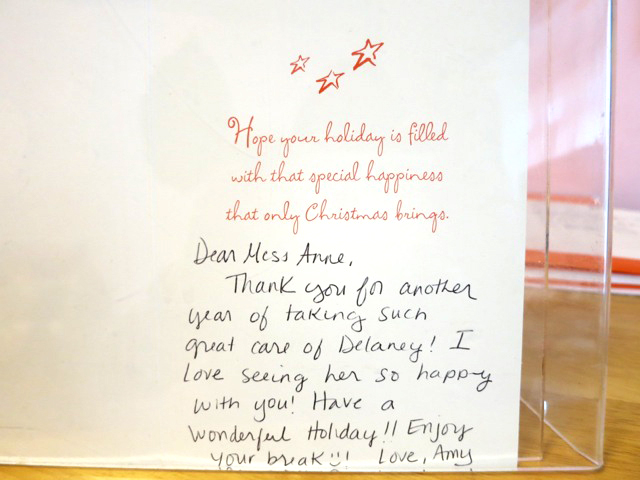 Hope your holiday is filled
with that special happiness
that only Christmas brings.
Dear Miss Anne,
Thank you for another
year of taking such
great care of Delaney! I
love seeing her so happy
with you! Have a
wonderful Holiday!! Enjoy
your break! Love, Amy